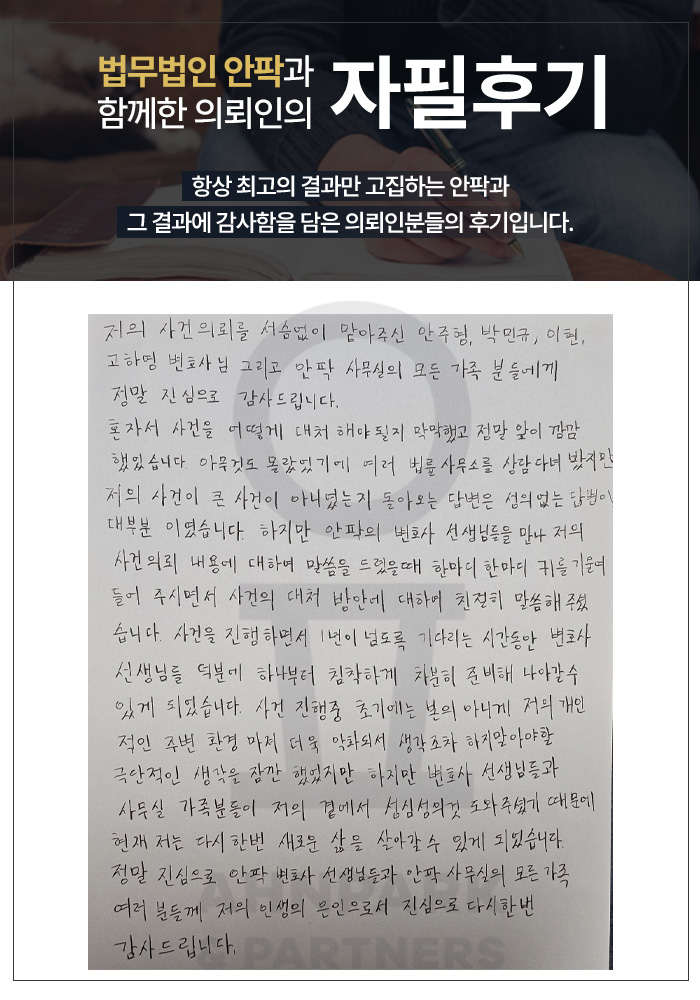 법무법인 안팍과
함께한 의뢰인의
자필후기
항상 최고의 결과만 고집하는 안팍과
그 결과에 감사함을 담은 의뢰인분들의 후기입니다.
저의 사건의뢰를 서슴없이 맡아주신 안주형, 박민규, 이헌,
고하영 변호사님 그리고 안팍 사무실의 모든 가족 분들에게
정말 진심으로 감사드립니다.
혼자서 사건을 어떻게 대처 해야 될지 막막했고 정말 앞이 깜깜
했었습니다. 아무것도 몰랐었기에 여러 법률 사무소를 상담 다녀 봤지만
저의 사건이 큰 사건이 아니였는지 돌아오는 답변은 성의없는 답변이
대부분 이였습니다. 하지만 안팍의 변호사 선생님들을 만나 저의
사건의뢰 내용에 대하여 말씀을 드렸을때 한마디 한마디 귀를 기울여
들어 주시면서 사건의 대처 방안에 대하여 친절히 말씀해 주셨
습니다. 사건을 진행하면서 1년이 넘도록 기다리는 시간동안 변호사
선생님들 덕분에 하나부터 침착하게 차분히 준비해 나아갈수
있게 되었습니다. 사건 진행중 초기에는 본의 아니게 저의 개인
적인 주변 환경 마저 더욱 악화되서 생각조차 하지말아야할
극단적인 생각을 잠깐 했었지만 하지만 변호사 선생님들과
사무실 가족분들이 저의 곁에서 성심성의것 도와주셨기 때문에
현재 저는 다시 한번 새로운 삶을 살아갈 수 있게 되었습니다.
정말 진심으로 안팍 변호사 선생님들과 안팍 사무실의 모든 가족
여러 분들께 저의 인생의 은인으로서 진심으로 다시한번
감사드립니다.
& PARTNERS